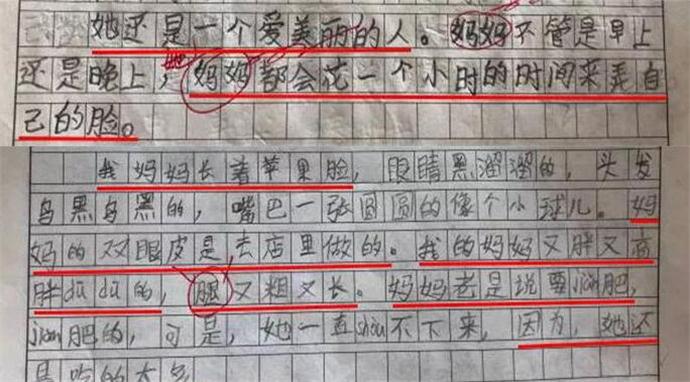 她还是一个爱美丽的人。妈妈不管是早上
还是晚上，她妈妈都会花一个小时的时间来弄自
己的脸。
我妈妈长着苹果脸，眼睛黑溜溜的，头发
乌黑乌黑的，嘴巴一张圆圆的像个小球儿。妈
妈的双眼皮是去店里做的。我的妈妈又胖又高
胖dūdū的，腿又粗又长。妈妈老是说要jiǎn肥，
jiǎn肥的，可是，她一直shòu不下来，因为，她还
是吃的太多